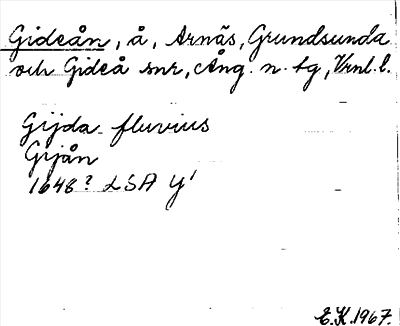 Gideån, å, Arnäs, Grundsunda
och Gideå snr, Ång. n. tg, Vrnl. l.
Gijda fluvius
Gijån
1648? LSA Y'
E.K. 1967.